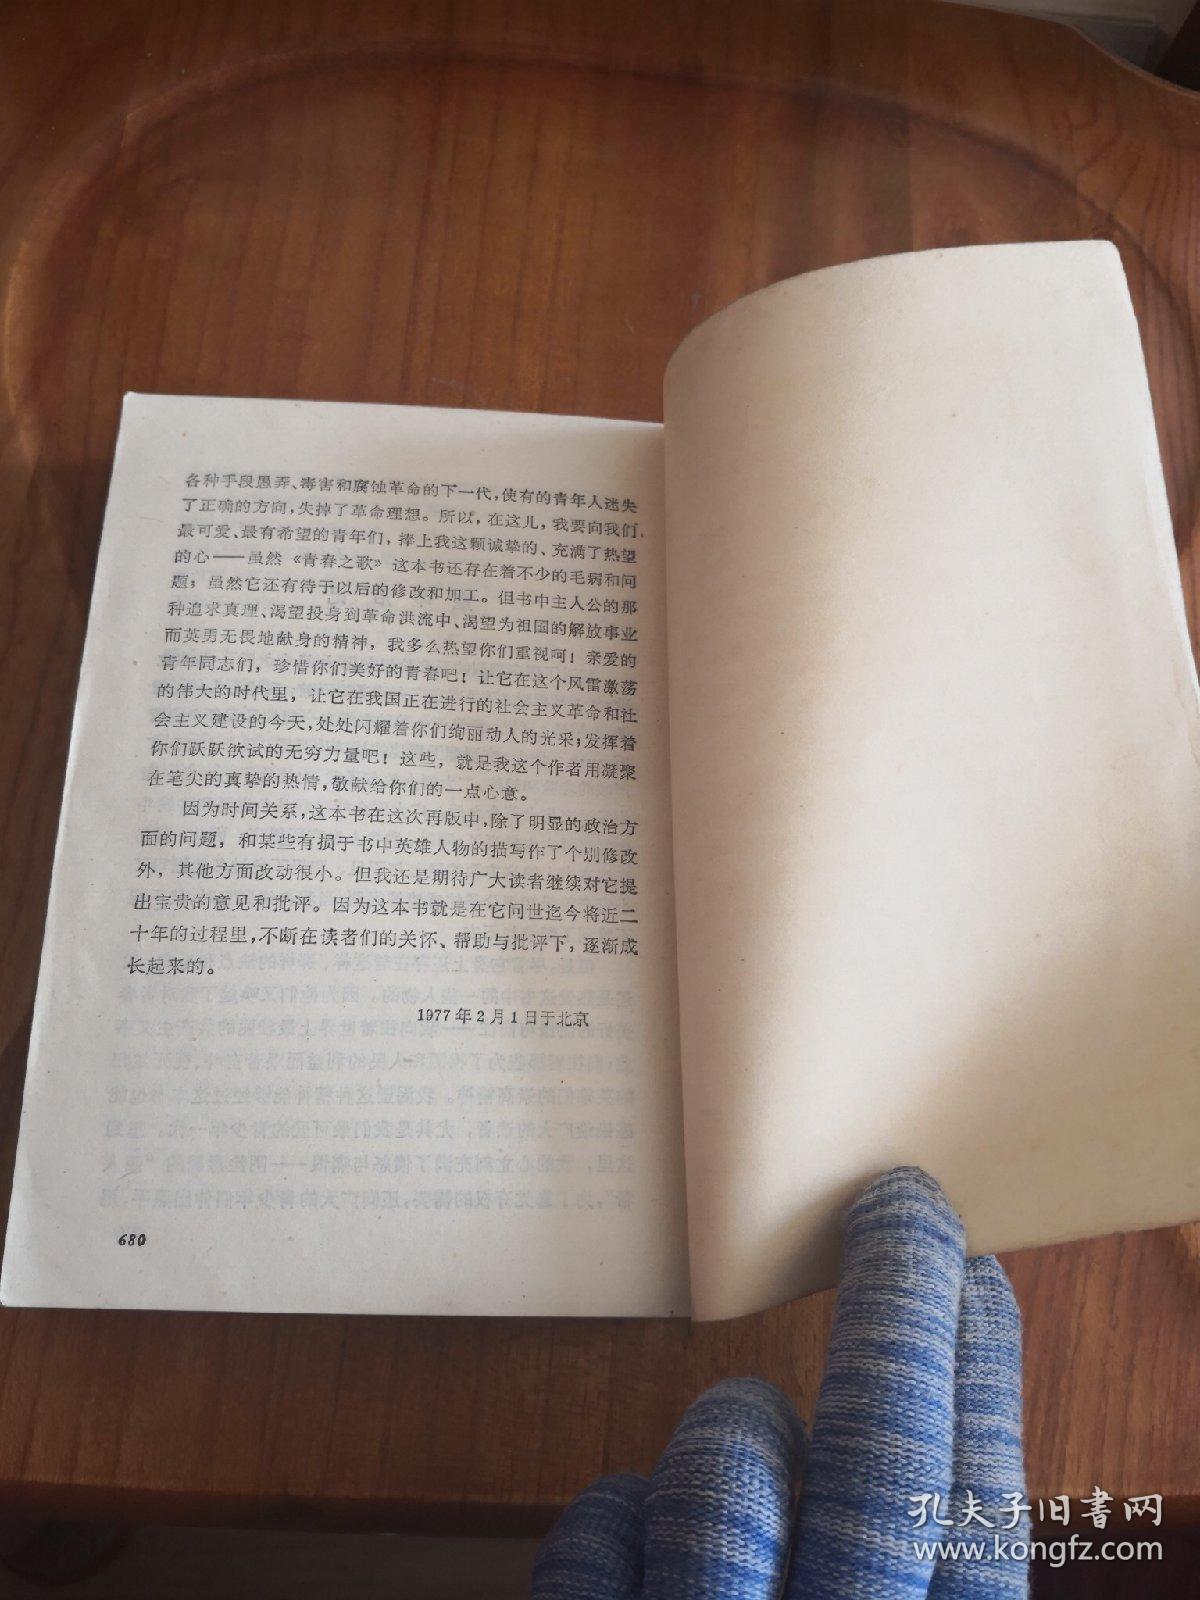 各种手段愚弄、毒害和腐蚀革命的下一代，使有的青年人迷失
了正确的方向，失掉了革命理想。所以，在这儿，我要向我们
最可爱、最有希望的青年们，捧上我这颗诚挚的、充满了热望
的心——虽然《青春之歌》这本书还存在着不少的毛病和问
题；虽然它还有待于以后的修改和加工。但书中主人公的那
种追求真理、渴望投身到革命洪流中、渴望为祖国的解放事业
而英勇无畏地献身的精神，我多么热望你们重视呵！亲爱的
青年同志们，珍惜你们美好的青春吧！让它在这个风雷激荡
的伟大的时代里，让它在我国正在进行的社会主义革命和社
会主义建设的今天，处处闪耀着你们绚丽动人的光采；发挥着
你们跃跃欲试的无穷力量吧！这些，就是我这个作者用凝聚
在笔尖的真挚的热情，敬献给你们的一点心意。
因为时间关系，这本书在这次再版中，除了明显的政治方
面的问题，和某些有损于书中英雄人物的描写作了个别修改
外，其他方面改动很小。但我还是期待广大读者继续对它提
出宝贵的意见和批评。因为这本书就是在它问世迄今将近二
十年的过程里，不断在读者们的关怀、帮助与批评下，逐渐成
长起来的。
1977年2月1日于北京
680
孔夫子旧书网
www.kongfz.com